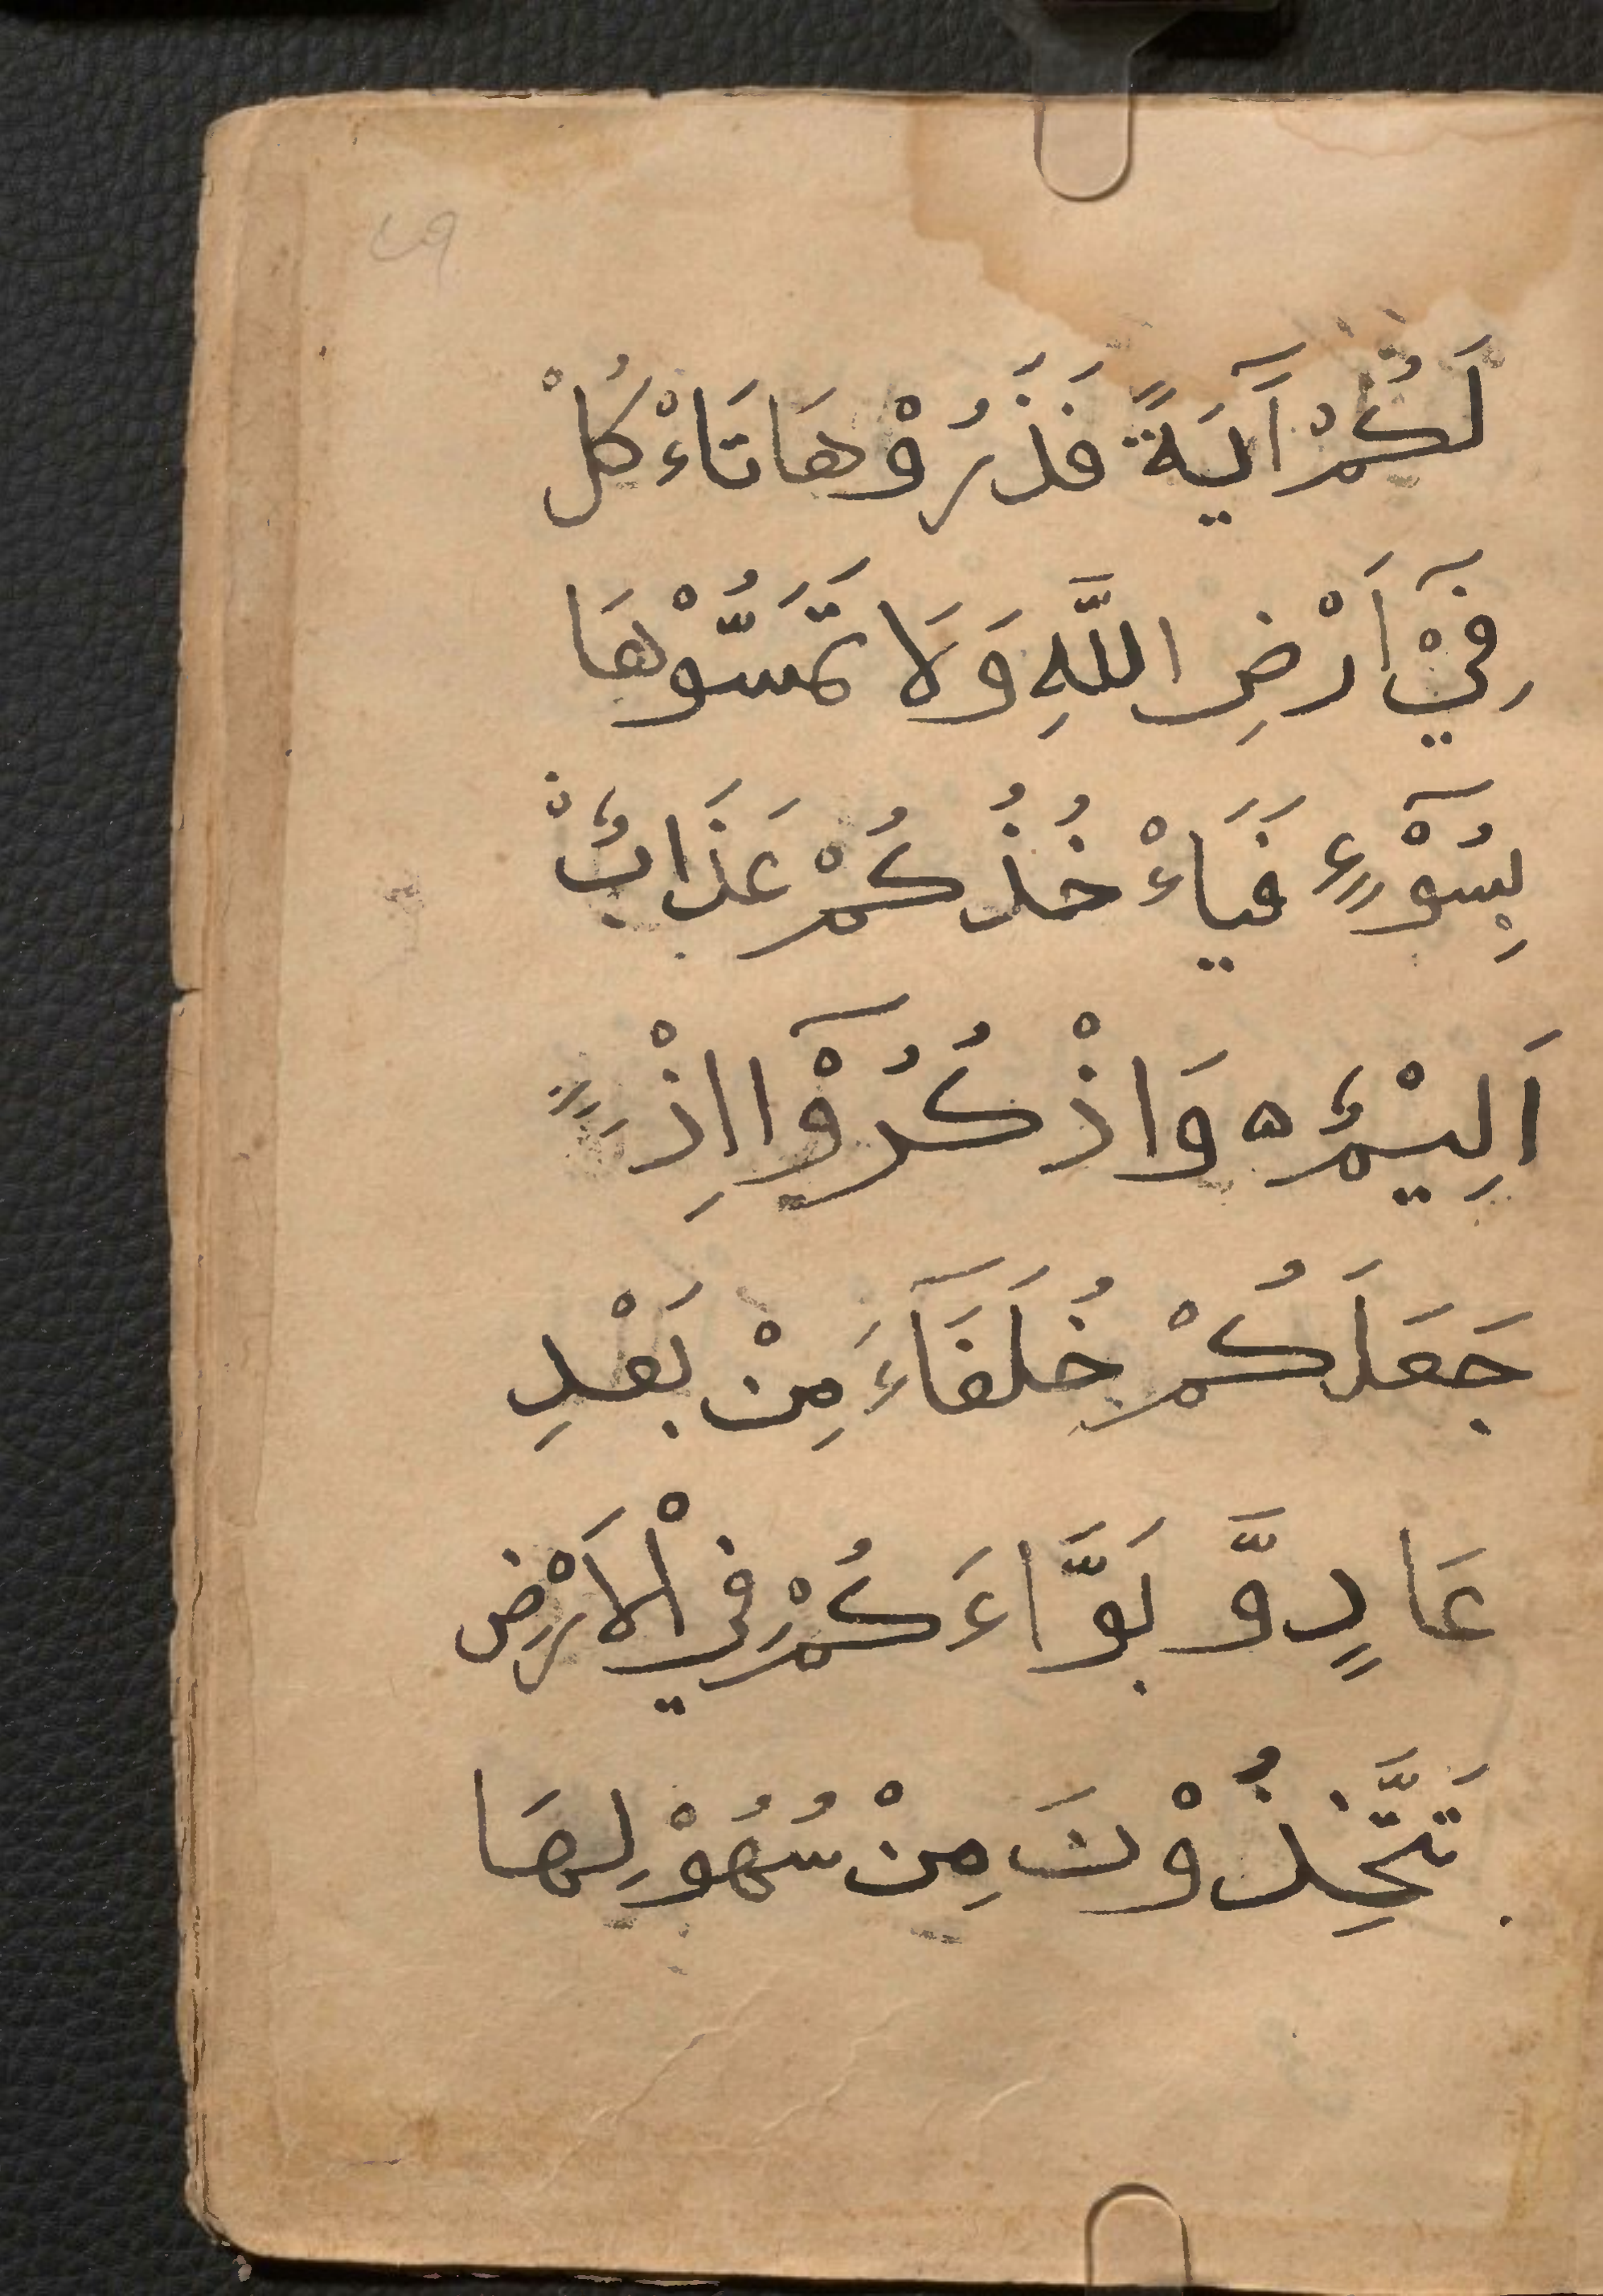 ٤٩
لَكُمْ آَيَةً فَذَرُوْهَا تَاءْكُلْ
فِيْٓ اَرْضِ اللَّهِ وَلَا تَمَسُّوْهَا
بِسُوْٓءٍ فَيَاءْخُذُكُمْ عَذَابٌ
اَلِيْمٌ ه وَاذْكُرُوْٓا اِذْ
جَعَلَكُمْ خُلَفَآءَ مِنْ بَعْدِ
عَادٍ وَّ بَوَّاءَ كُمْ فِي الْاَرْضِ
تَتَّخِذُوْنَ مِنْ سُهُوْلِهَا